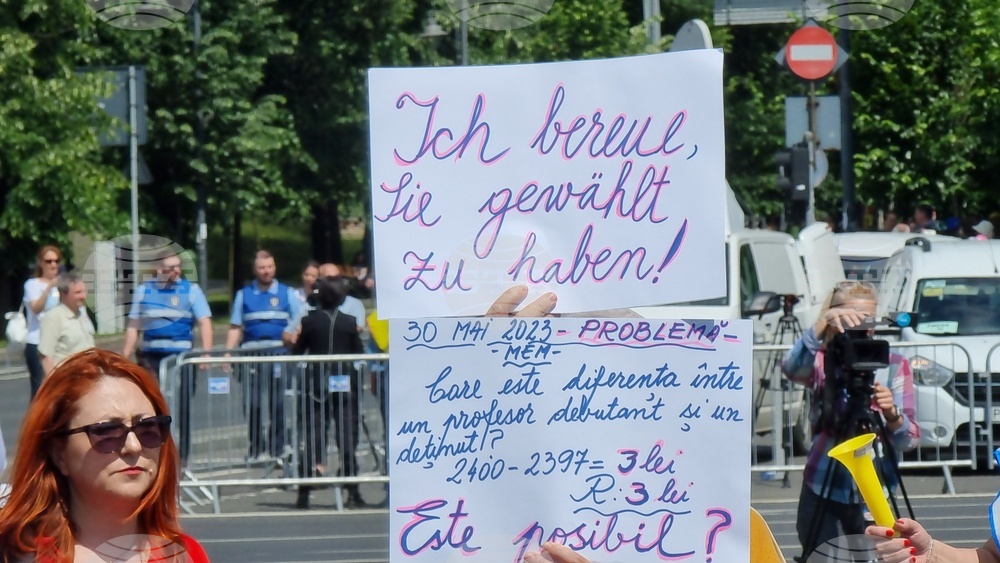 Ich bereue,
Sie gewählt
zu haben!
30 MAI 2023 - PROBLEMĂ -
- MEM -
Care este diferența între
un profesor debutant și un
deținut?
2400 - 2397 = 3 lei
R: 3 lei
Este posibil?